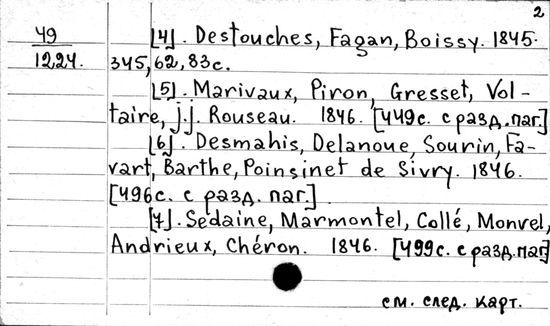 2
49
12,24.
[4]. Destouches, Fagan, Boissy. 1845.
345, 62, 83с.
[5]. Marivaux, Piron, Gresset, Vol-
taire, j.j. Rouseau. 1846. [449с. с разд. паг.]
[6]. Desmahis, Delanoue, Sourin, Fa-
vart, Barthe, Poinsinet de Sivry. 1846.
[496с. с разд. паг.]
[7]. Sedaine, Marmontel, Collé, Monvel,
Andrieux, Chéron. 1846. [499с. с разд. паг]
см. след. карт.